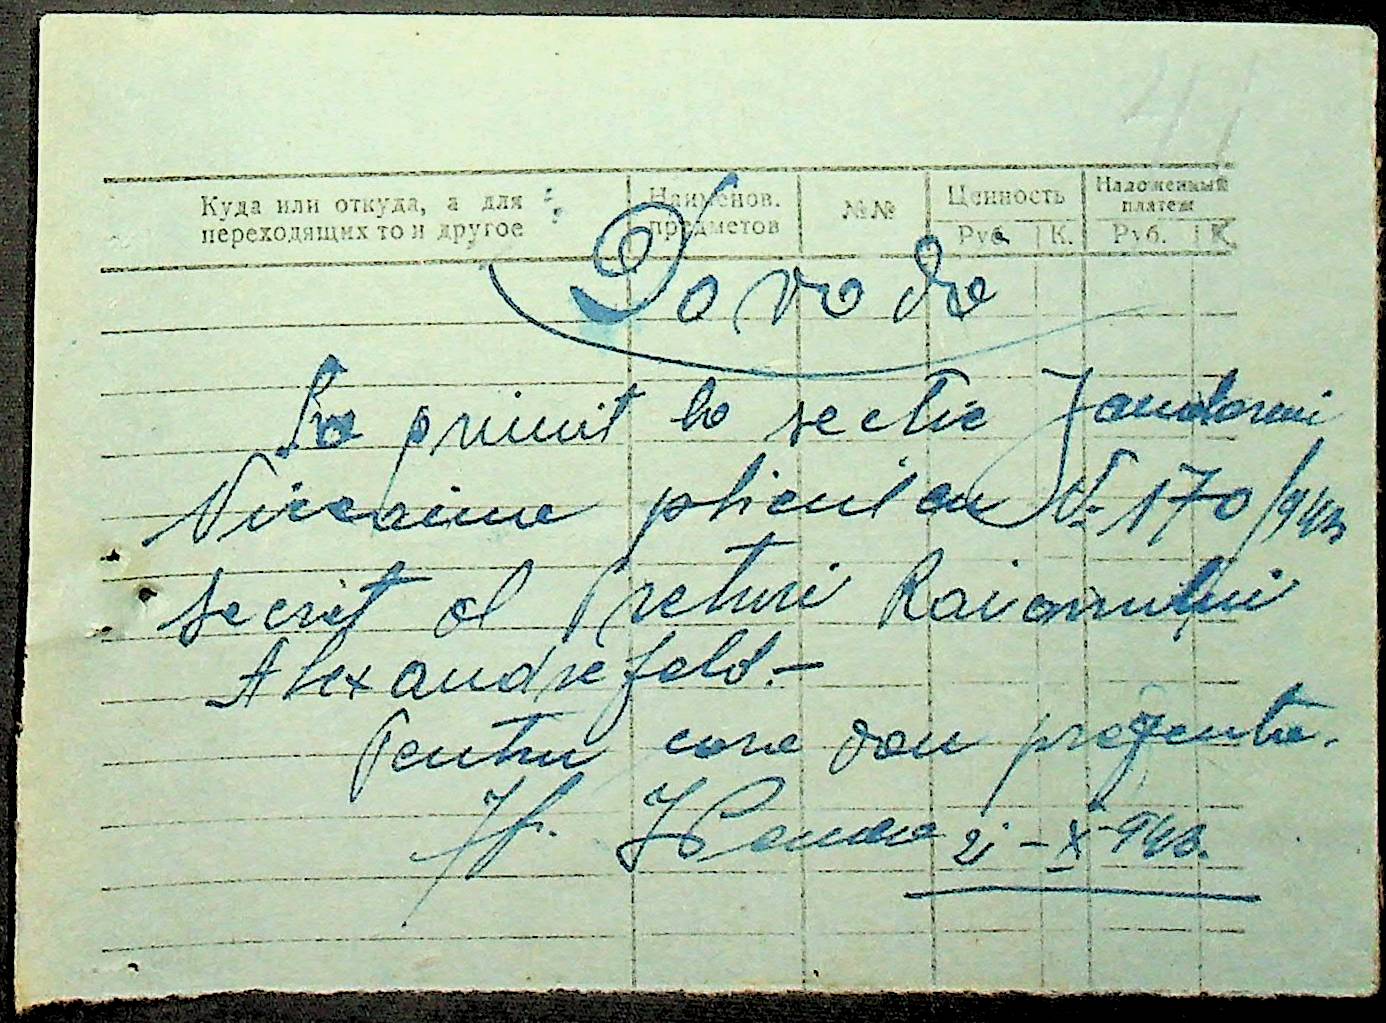 41
Куда или откуда, а для
переходящих то и другое
Наименов.
предметов
№№
Ценность
Руб. К.
Наложенный
платеж
Руб. К.
Dovada
S'a primit la sectie Jandarmi
plicul cu N. 170/943
secret al Preturi Raionului
Alexandrefeld.-
Pentru care dau prezenta.
2-X-943.